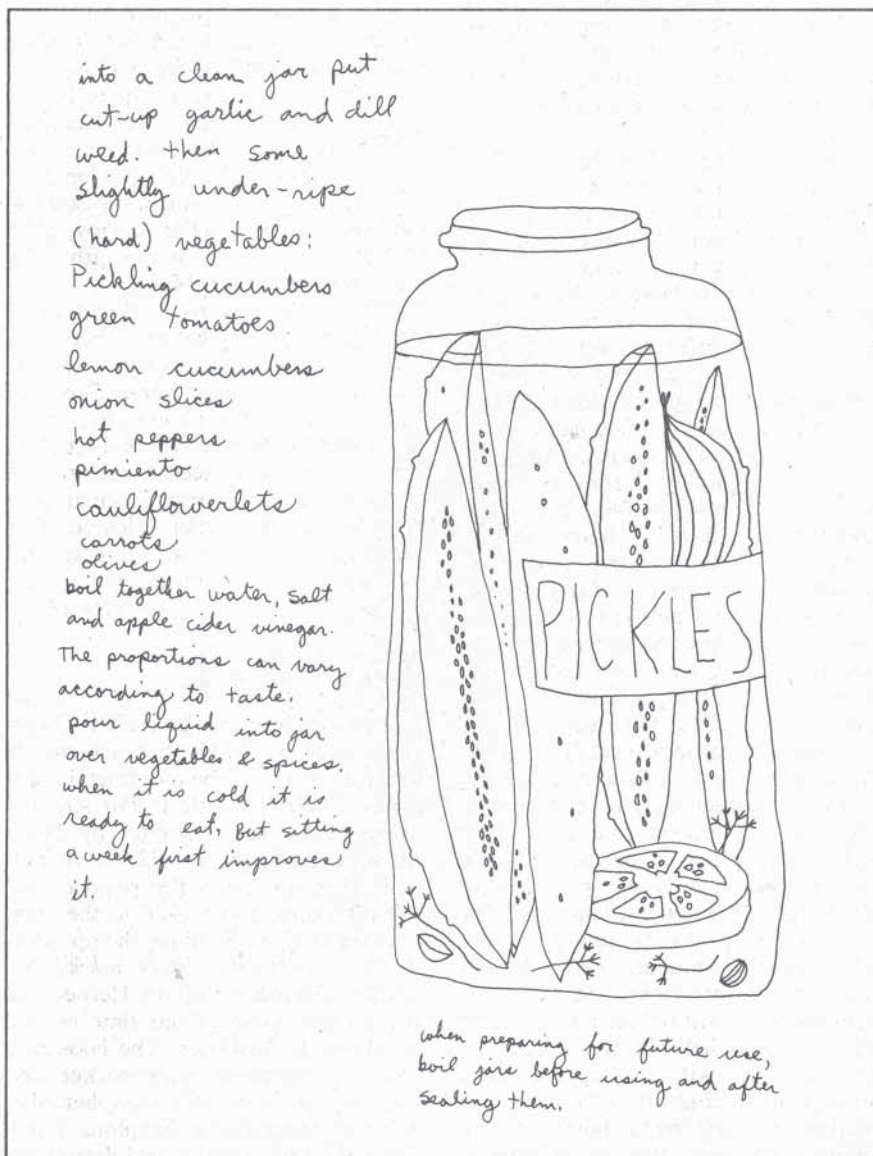 into a clean jar put
cut-up garlic and dill
weed. then some
slightly under-ripe
(hard) vegetables:
Pickling cucumbers
green tomatoes
lemon cucumbers
onion slices
hot peppers
pimiento
cauliflowerlets
carrots
olives
boil together water, salt
and apple cider vinegar.
The proportions can vary
according to taste.
pour liquid into jar
over vegetables & spices.
when it is cold it is
ready to eat, But sitting
a week first improves
it.
PICKLES
when preparing for future use,
boil jars before using and after
sealing them.